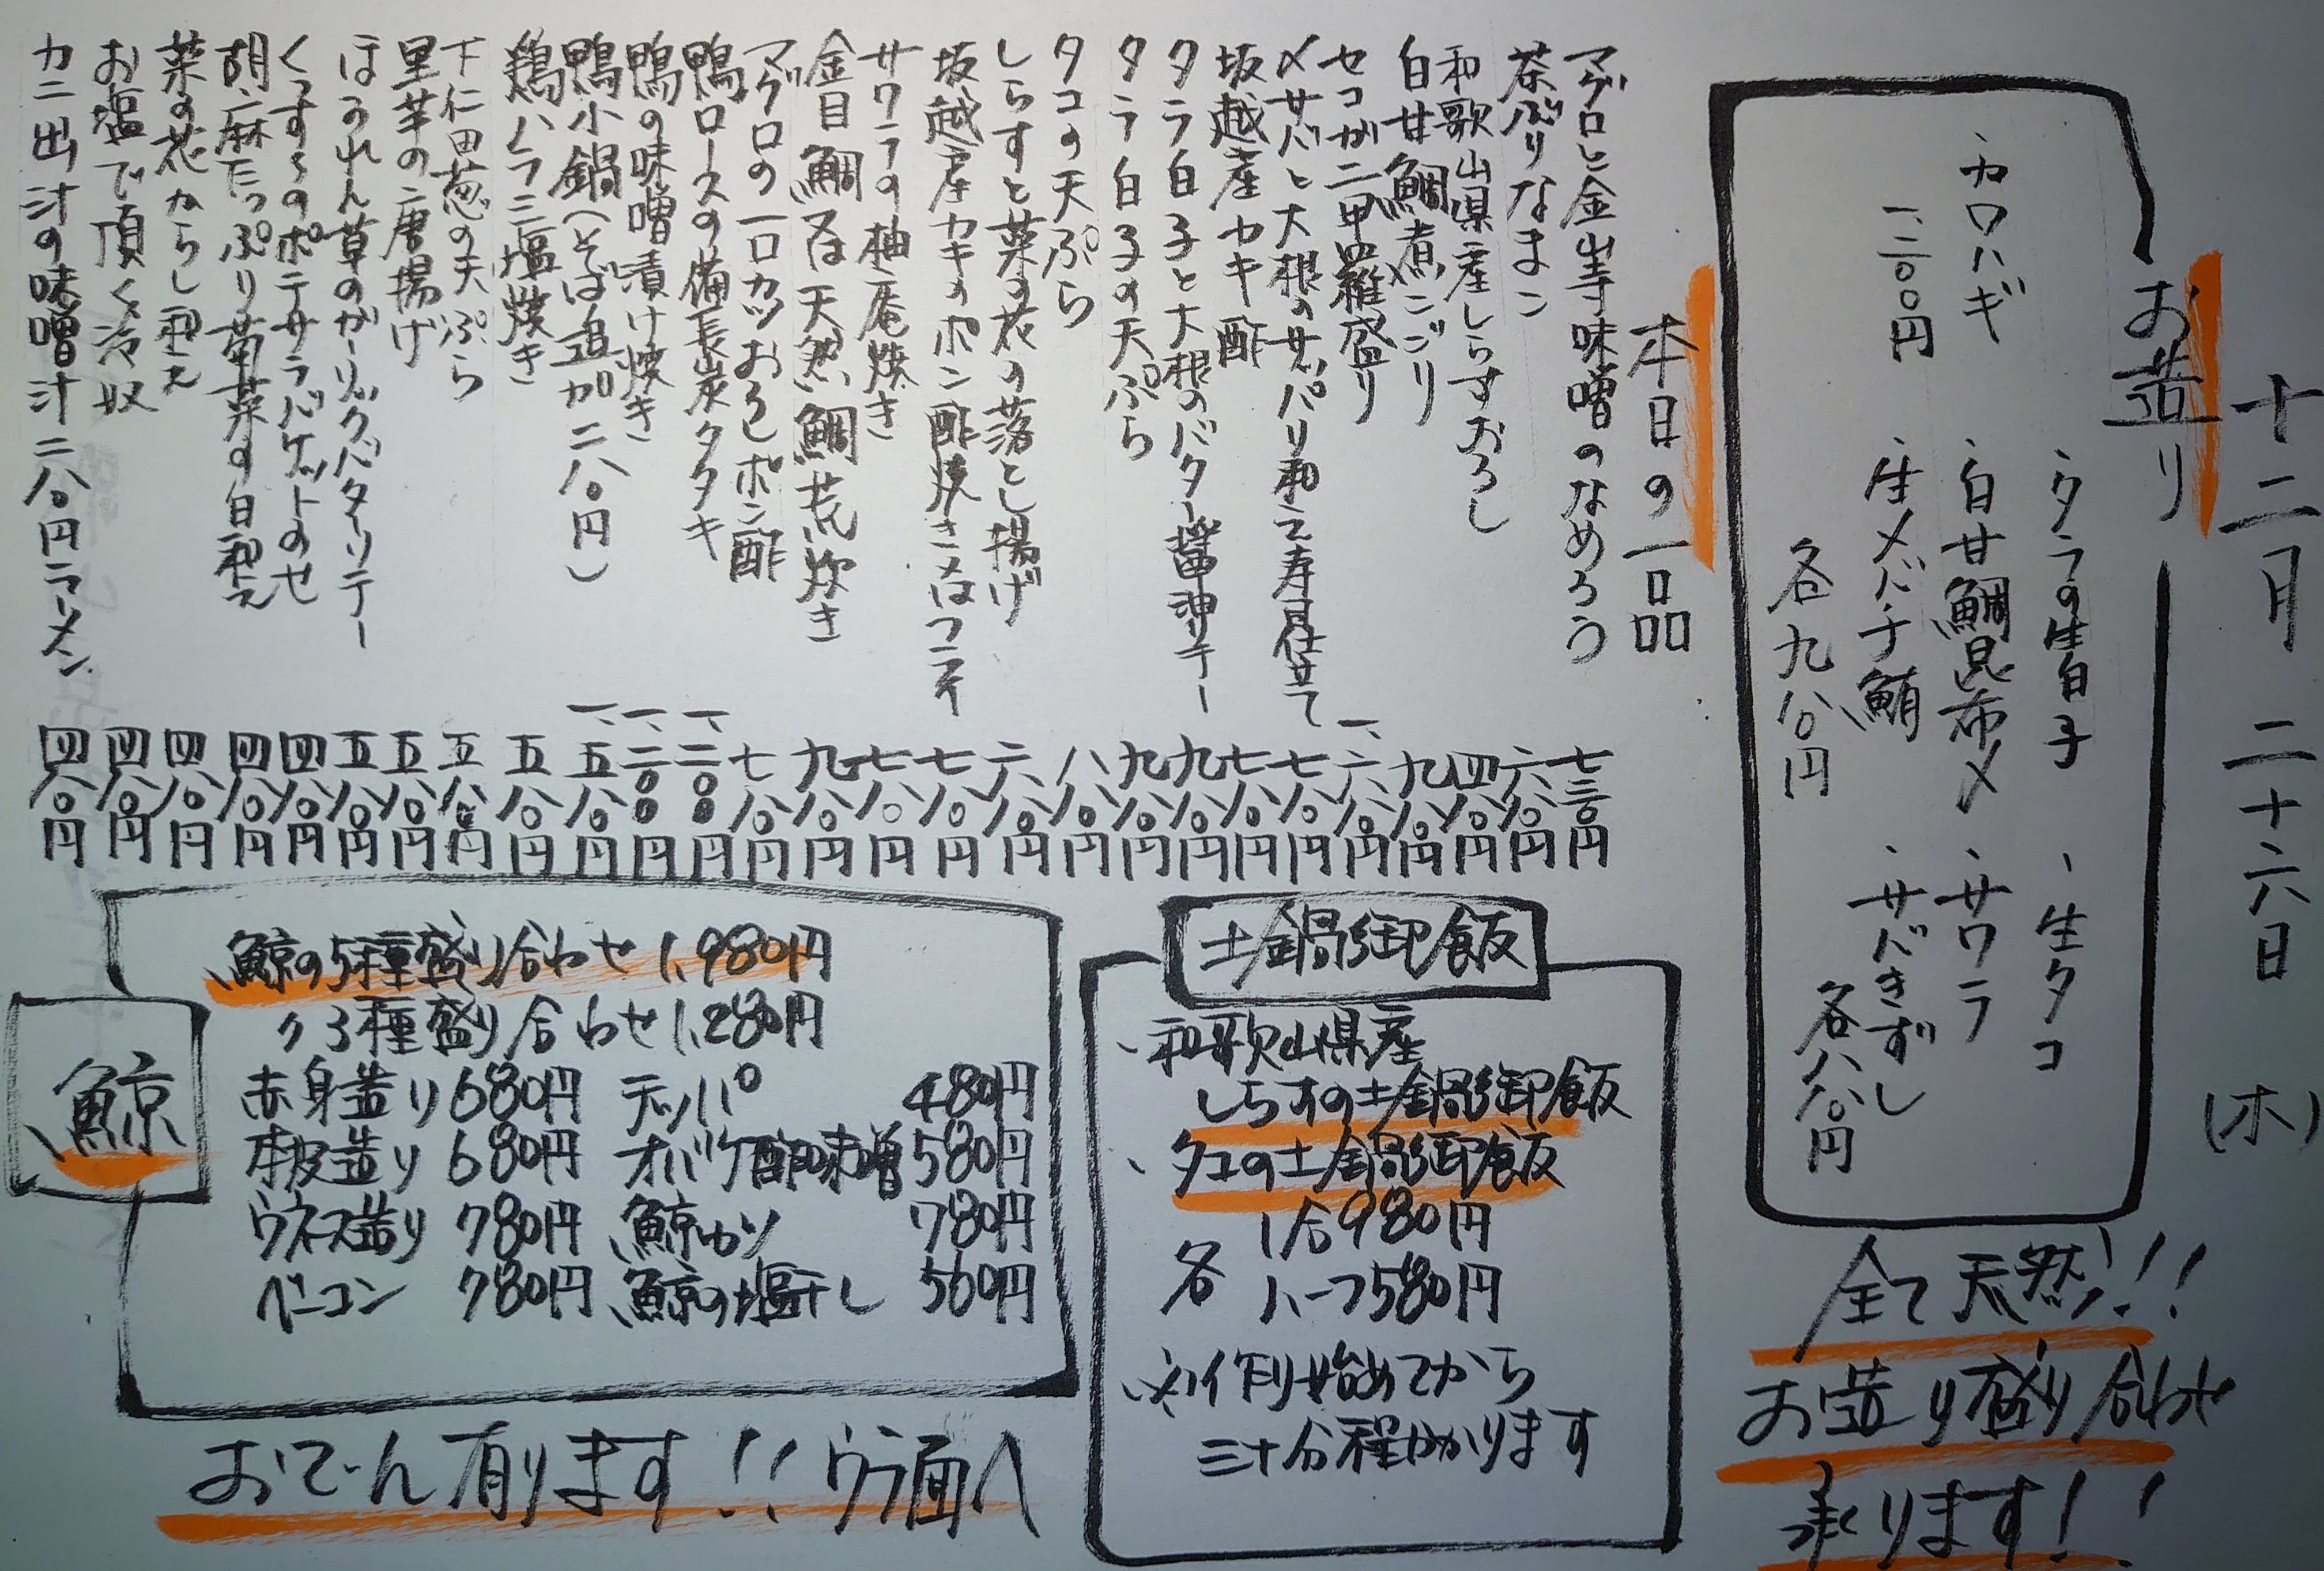 十二月二十六日(木)
お造り
・タラの生白子
・生タコ
・カワハギ
一、二〇〇円
・白甘鯛昆布〆
・サワラ
・生メバチ鮪
・サバきずし
各九八〇円
各八八〇円
全て天然!!
お造り盛り合わせ
承ります!!
本日の一品
マグロと金山寺味噌のなめろう 七三〇円
茶ぶりなまこ 六八〇円
和歌山県産しらすおろし 四八〇円
白甘鯛煮こごり 九八〇円
セコガニ甲羅盛り 一、六八〇円
〆サバと大根のサッパリ和え寿司仕立て 七八〇円
坂越産カキ酢 七八〇円
タラ白子と大根のバター醤油ソテー 九八〇円
タラ白子の天ぷら 九八〇円
タコの天ぷら 八八〇円
しらすと菜の花の落とし揚げ 六八〇円
坂越産カキのポン酢焼き又はフライ 七八〇円
サワラの柚庵焼き 七八〇円
金目鯛又は天然鯛荒炊き 九八〇円
マグロの一口カツおろしポン酢 七八〇円
鴨ロースの備長炭タタキ 一、二〇〇円
鴨の味噌漬け焼き 一、二〇〇円
鴨小鍋(そば追加二八〇円) 一、五八〇円
鶏ハラミ塩焼き 五八〇円
下仁田葱の天ぷら 五八〇円
里芋の唐揚げ 五八〇円
ほうれん草のガーリックバターソテー 五八〇円
くんすみのポテサラバゲットのせ 四八〇円
胡麻たっぷり菊菜の白和え 四八〇円
菜の花からし和え 四八〇円
お塩で頂く冷奴 四八〇円
カニ出汁の味噌汁二八〇円ラーメン 四八〇円
土鍋御飯
・和歌山県産
しらすの土鍋御飯
・タコの土鍋御飯
各 1合980円
ハーフ580円
※作り始めてから
三十分程かかります
鯨
鯨の5種盛り合わせ 1,980円
〃3種盛り合わせ 1,280円
赤身造り 680円 テッパ 480円
本皮造り 680円 オバケ酢味噌 580円
ウネス造り 780円 鯨カツ 780円
ベーコン 780円 鯨の塩干し 560円
おでん有ります!!ウラ面へ